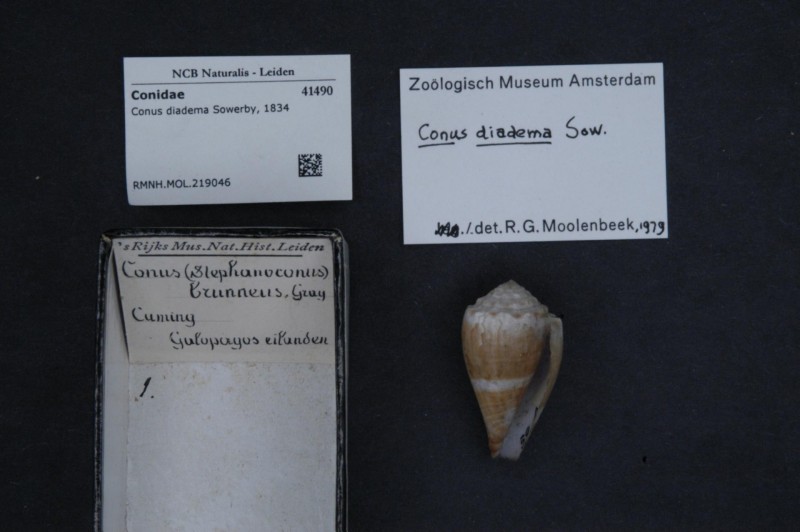 NCB Naturalis - Leiden
Conidae 41490
Conus diadema Sowerby, 1834
RMNH.MOL.219046
Zoölogisch Museum Amsterdam
Conus diadema Sow.
./.det. R.G. Moolenbeek, 1979
's Rijks Mus. Nat. Hist. Leiden
Conus (Stephanoconus)
brunneus, Gray
Cuming
Galopagos eilanden
1.